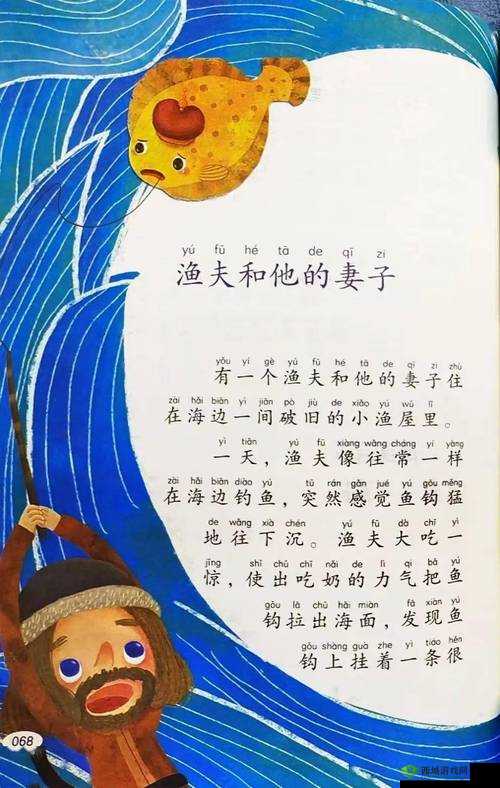 yú fū hé tā de qī zi
渔夫和他的妻子
yǒu yí gè yú fū hé tā de qī zi zhù
有一个渔夫和他的妻子住
zài hǎi biān yì jiān pò jiù de xiǎo yú wū lǐ
在海边一间破旧的小渔屋里。
yì tiān yú fū xiàng wǎng cháng yí yàng
一天，渔夫像往常一样
zài hǎi biān diào yú tū rán gǎn jué yú gōu měng
在海边钓鱼，突然感觉鱼钩猛
de wǎng xià chén yú fū dà chī yì
地往下沉。渔夫大吃一
jīng shǐ chū chī nǎi de lì qi bǎ yú
惊，使出吃奶的力气把鱼
gōu lā chū hǎi miàn fā xiàn yú
钩拉出海面，发现鱼
gōu shàng guà zhe yì tiáo hěn
钩上挂着一条很
068
西城游戏网